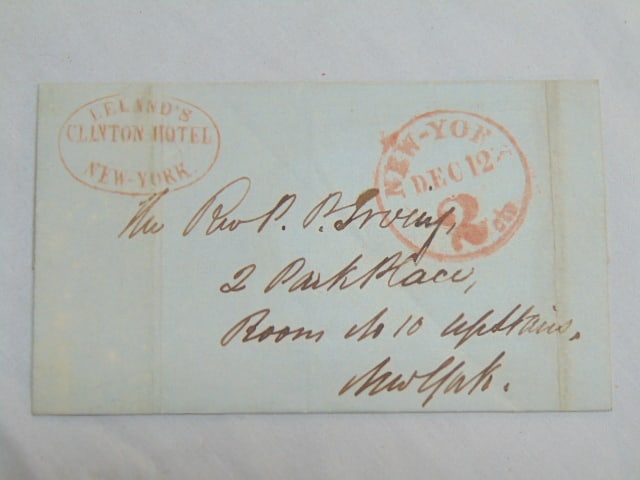 LELAND'S
CLINTON HOTEL
NEW-YORK.
NEW-YORK
DEC 12
2 cts
The Rev P. P. Irving,
2 Park Place,
Room No 10 upstairs.
New York.